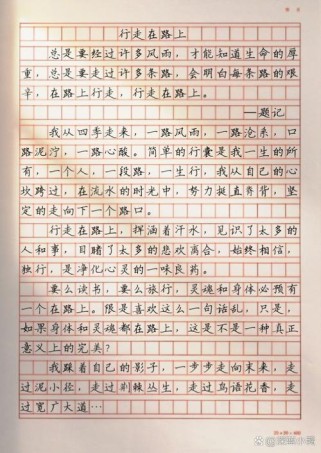 行走在路上
总是要经过许多风雨，才能知道生命的厚
重，总是要走过许多条路，会明白每条路的艰
辛，在路上行走，行走。
——题记
我从四季走来，一路风雨，一路沧桑，口
路泥泞，一路心酸。简单的行囊是我一生的所
有，一个人，一段路，一生行，我从自己的心
坎跨过，在流水的时光中，努力挺直脊背，坚
定的走向下一个路口。
行走在路上，挥洒着汗水，见识了太多的
人和事，目睹了太多的悲欢离合，始终相信，
独行，是净化心灵的一味良药。
要么读书，要么旅行，灵魂和身体必须有
一个在路上。很是喜欢这么一句话乱，只是，
如果身体和灵魂都在路上，这是不是一种真正
意义上的完美？
我踩着自己的影子，一步步走向未来，走
过泥小径，走过荆棘丛生，走过鸟语花香，走
过宽广大道…